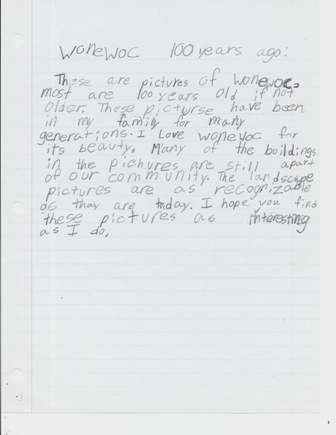 Wonewoc 100 years ago:
These are pictures of Wonewoc.
most are 100 years old if not
older. These picturse have been
in my family for many
generations. I Love Wonewoc for
its beauty. Many of the buildings
in the pichures are still apart
of our community. The landscape
pictures are as recognizable
as they are today. I hope you find
these pictures as interesting
as I do.